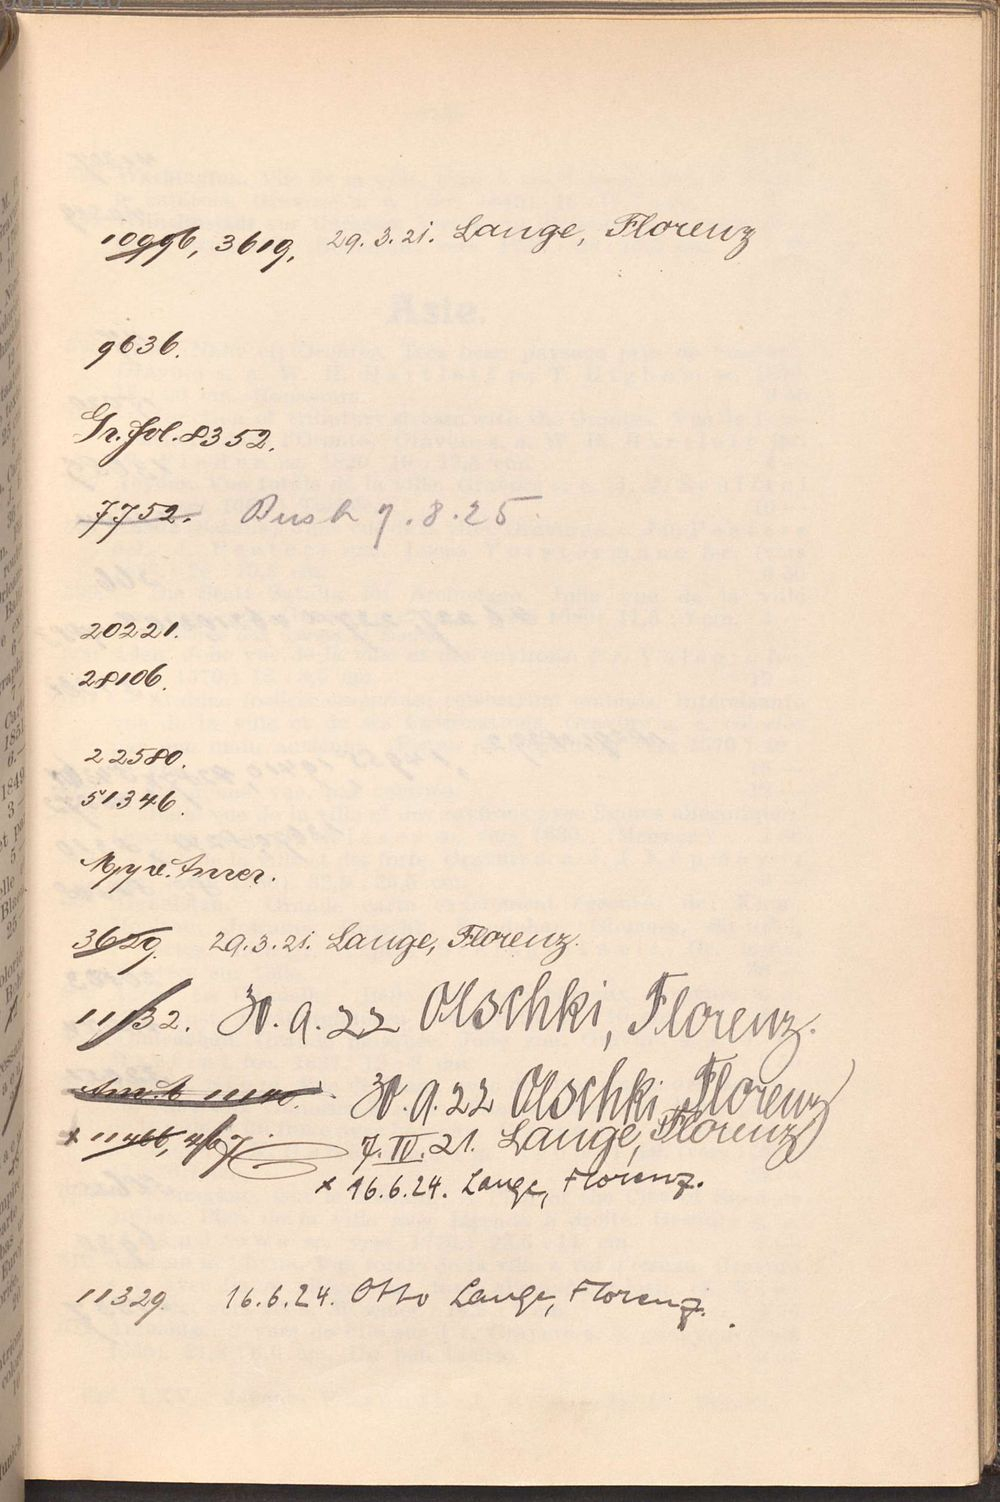 10996, 3619, 29.3.21. Lange, Florenz
9636.
Gr. fol. 8352.
7752. Busch 7.8.25
20221.
28106.
22580.
51346.
3629. 29.3.21. Lange, Florenz.
11132. 30.9.22 Olschki, Florenz.
11140. 30.9.22 Olschki, Florenz
x 11466, 467. 7.IV.21. Lange, Florenz
x 16.6.24. Lange, Florenz.
11329. 16.6.24. Otto Lange, Florenz.